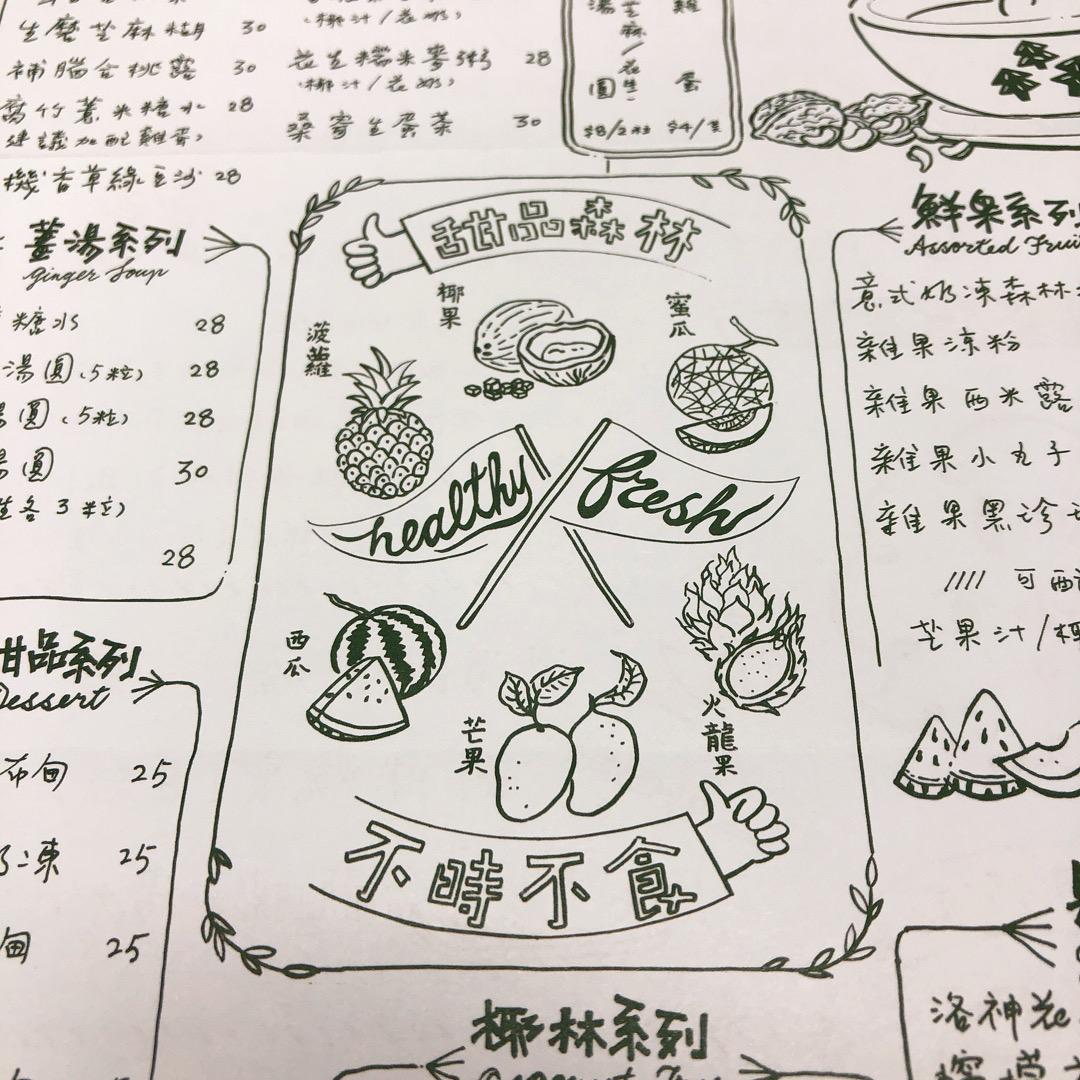 生磨芝麻糊 30
補腦合桃露 30
腐竹薏米糖水 28
建議加配雞蛋)
機香草綠豆沙 28
(椰汁/花奶)
花生糯米麥粥 28
(椰汁/花奶)
桑寄生蛋茶 30
湯圓
芝麻/花生
$8/2粒
雞蛋
$4/隻
薑湯系列
Ginger Soup
糖水 28
湯圓(5粒) 28
圓(5粒) 28
圓 30
各3粒)
28
甜品系列
Dessert
布甸 25
凍 25
甸 25
甜品森林
椰果
蜜瓜
菠蘿
healthy
fresh
西瓜
芒果
火龍果
不時不食
椰林系列
鮮果系列
Assorted Frui
意式奶凍森林
雜果涼粉
雜果西米露
雜果小丸子
雜果黑珍
//// 可配
芒果汁/椰
洛神花